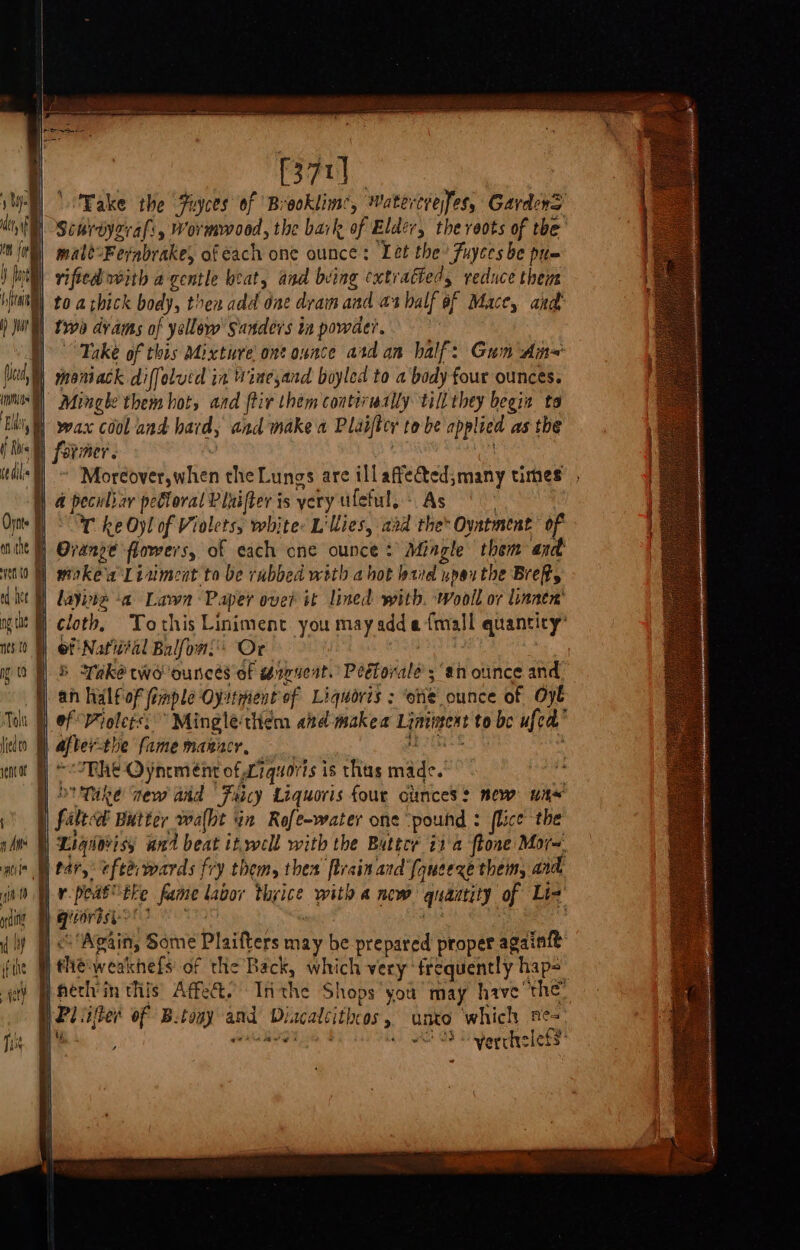 [371]
Take the Juyces of Brooklime, Watercresses, Garden-
Scurvygrass, Wormwood, the bark of Elder, the roots of the
male-Fernbrake, of each one ounce: Let the Juyces be pu-
rified with a gentle heat, and being extracted, reduce them
to a thick body, then add one dram and an half of Mace, and
two drams of yellow Sanders in powder.
Take of this Mixture one ounce and an half: Gum Am-
moniack dissolved in Wine, and boyled to a body four ounces.
Mingle them hot, and stir them continually till they begin to
wax cool and hard, and make a Plaister to be applied as the
former.
Moreover, when the Lungs are ill affected, many times
a peculiar pectoral Plaister is very useful. As
Take Oyl of Violets, white Lillies, and the Oyntment of
Orange flowers, of each one ounce: Mingle them and
make a Liniment to be rubbed with a hot hand upon the Brest,
laying a Lawn Paper over it lined with Wooll or linnen
cloth. To this Liniment you may add a small quantity
of Natural Balsom. Or
Take two ounces of Unguent. Pectorale; an ounce and
an half of simple Oyntment of Liquoris: one ounce of Oyl
of Violets. Mingle them and make a Liniment to be used
after the same manner.
The Oyntment of Liquoris is thus made.
Take new and Juicy Liquoris four ounces: new un-
salted Butter washt in Rose-water one pound: slice the
Liquoris, and beat it well with the Butter in a stone Mor-
tar, afterwards fry them, then strain and squeeze them, and
repeat the same labor thrice with a new quantity of Li-
quoris.
Again, Some Plaisters may be prepared proper against
the weakness of the Back, which very frequently hap-
neth in this Affect. In the Shops you may have the
Plaister of Betony and Diacalcitheos, unto which ne-
vertheless